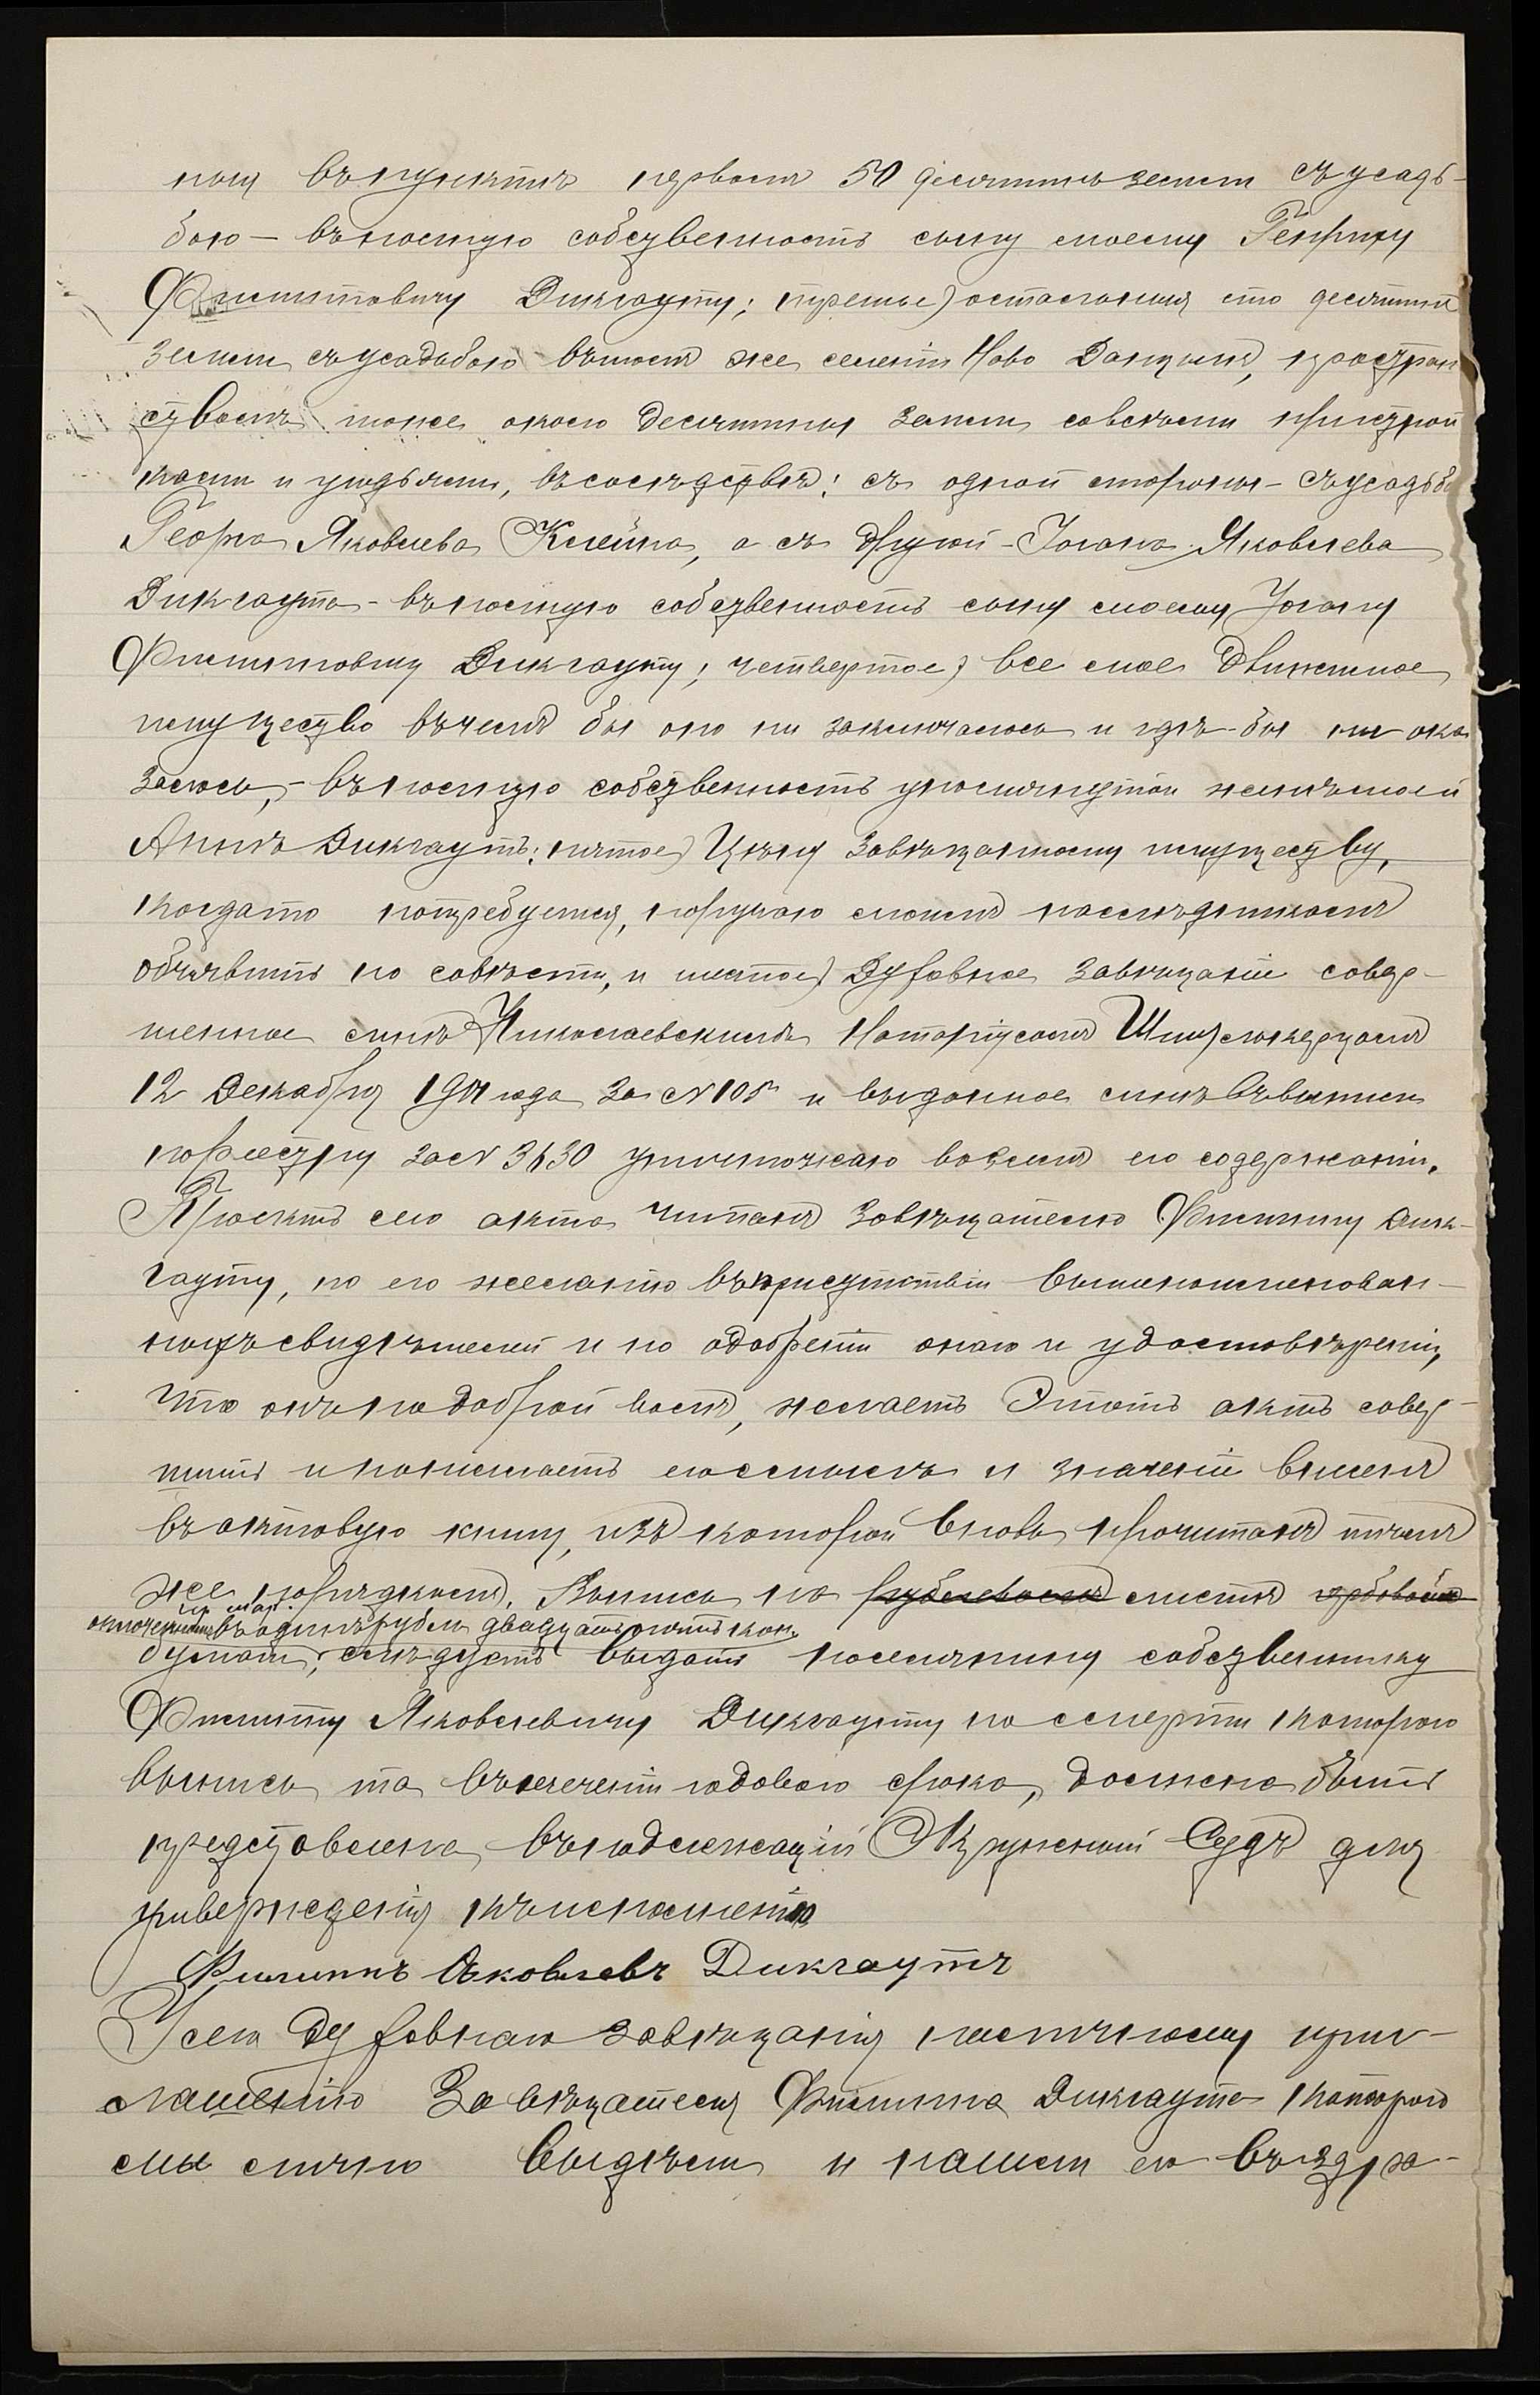 ною въ пунктѣ первомъ 50 десятинъ земли съ усадь-
бою — въ полную собственность сыну моему Генриху
Филипповичу Дикгауту; третье) остальныя сто десятинъ
земли съ усадьбою въ томъ же селеніи Ново Данцигъ, простран
ствомъ тоже около десятины земли со всѣми пристрой
ками и угодьями, въ сосѣдствѣ: съ одной стороны - съ усадьбо
Георга Яковлева Клейна, а съ другой - Іогана Яковлева
Дикгаута - въ полную собственность сыну моему Іогану
Филипповичу Дикгауту; четвертое) все мое движимое
имущество въ чемъ бы оно ни заключалось и гдѣ-бы ни ока
залось, - въ полную собственность упомянутой женѣ моей
Аннѣ Дикгаутъ; пятое) Цѣну завѣщанному имуществу,
когда то потребуется, поручаю моимъ наслѣдникамъ
объявить по совѣсти, и шестое) Духовное завѣщаніе совер-
шенное мною у Николаевскимъ Нотаріусомъ
12 Декабря 1901 года за № 105 и выданное мнѣ въ выписи
по реестру за № 3630 уничтожаю во всемъ его содержаніи.
Проектъ сего акта читанъ завѣщателю Филиппу Дик-
гауту, по его желанію въ присутствіи вышепоименован-
ныхъ свидѣтелей и по одобреніи онаго и удостовѣреніи,
что онъ по доброй волѣ, желаетъ этотъ актъ совер-
шить и понимаетъ его смыслъ и значеніе внесенъ
въ актовую книгу, изъ которой вновь прочитанъ тѣмъ
же порядкомъ. Выпись на рублевомъ листѣ гербовой
оплоченномъ гер. мар. въ одинъ рубль двадцать пять коп.
бумаги, слѣдуетъ выдать поселянину собственнику
Филиппу Яковлевичу Дикгауту по смерти котораго
выпись та въ теченіи годоваго срока, должна быть
представлена въ подлежащій Окружный Судъ для
утвержденія къ исполненію
Филиппъ Яковлевъ Дикгаутъ
У сего духовнаго завѣщанія по личному при-
глашенію Завѣщателя Филиппа Дикгаута котораго
мы лично видѣли и нашли его въ здра-